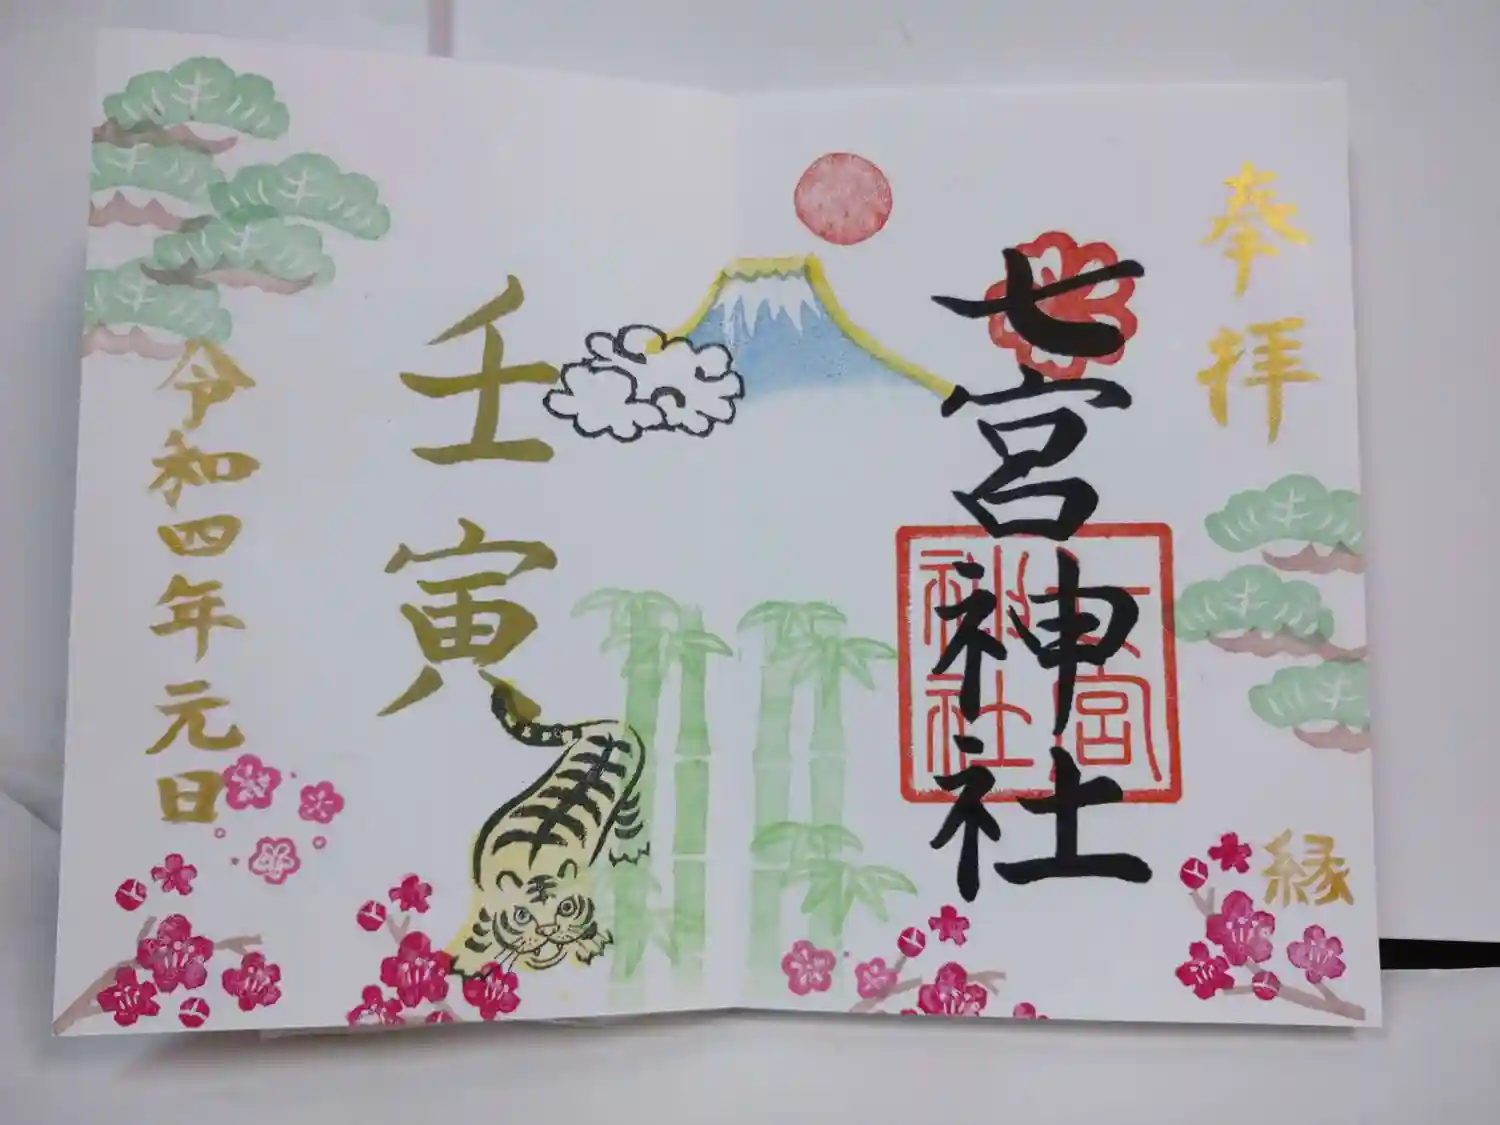 奉拝
縁
七宮神社
七宮神社
壬寅
令和四年元日